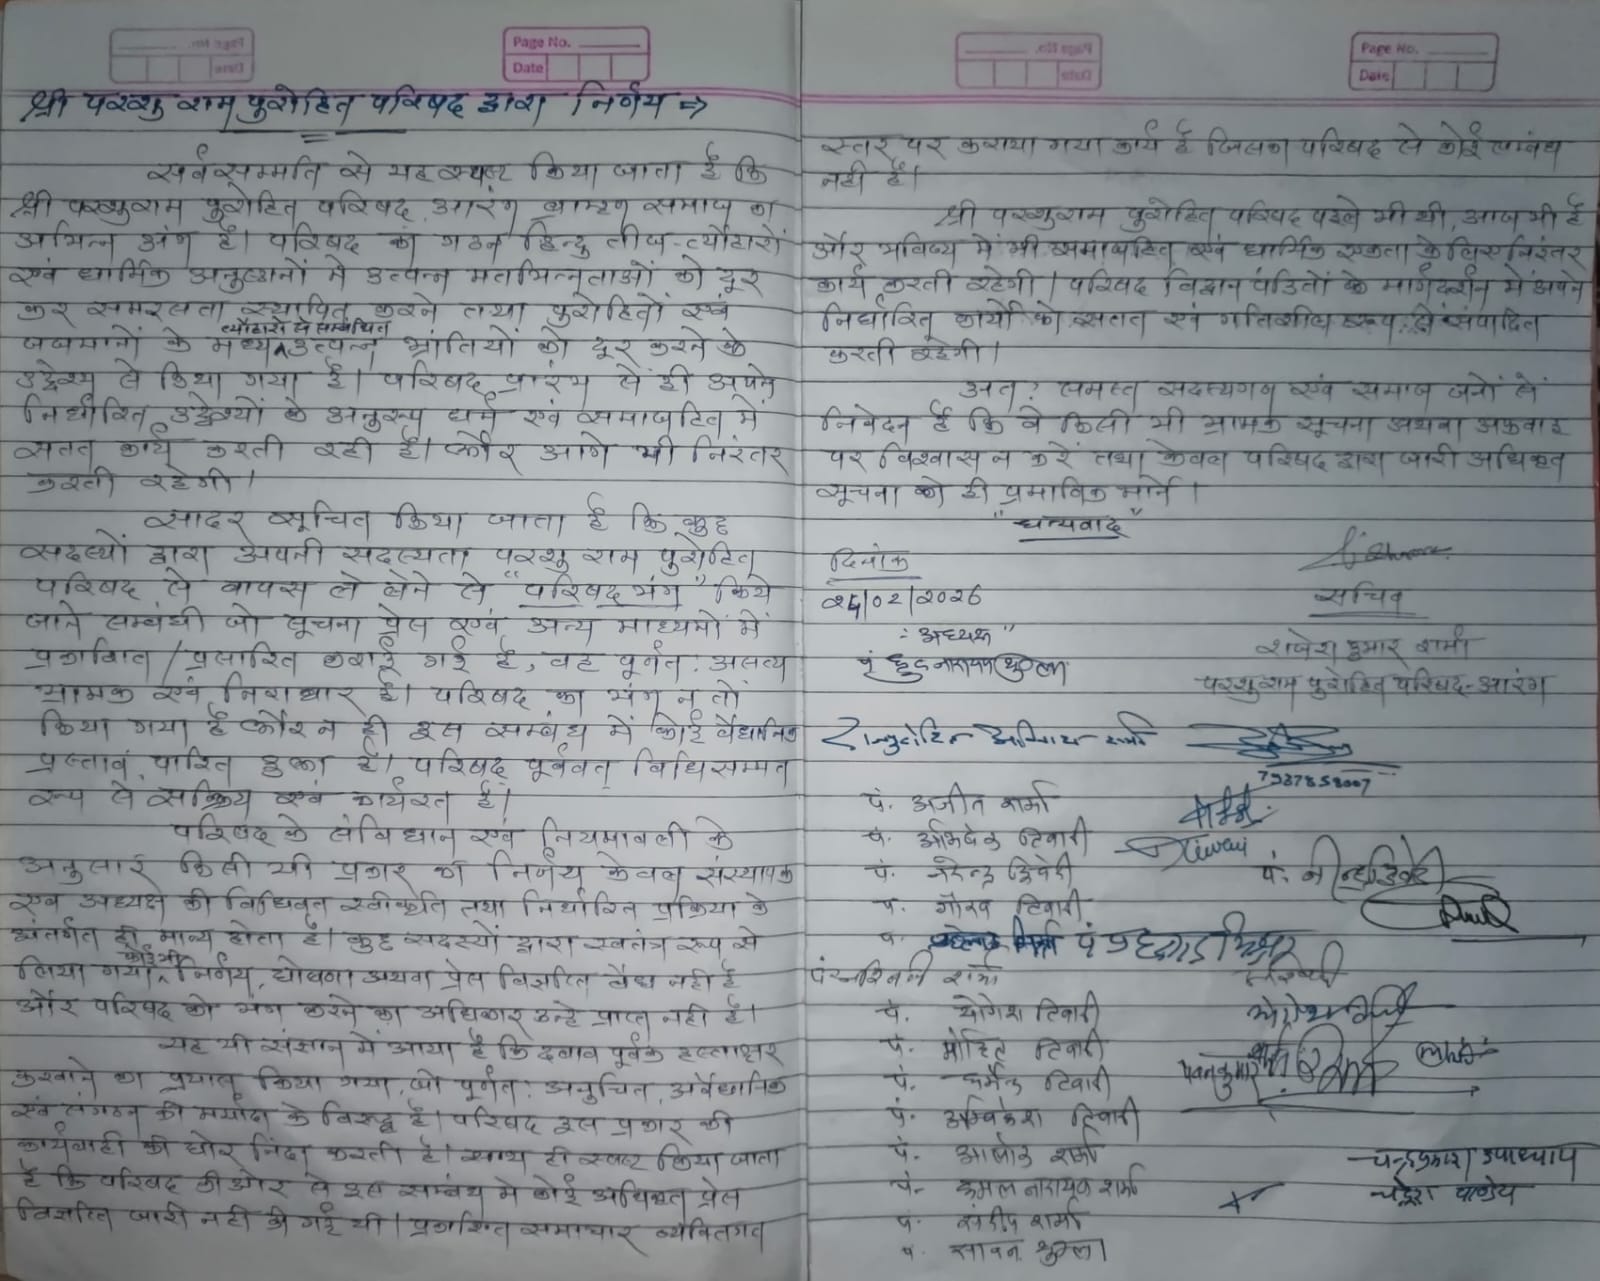 Page No.
Date
श्री परशुराम पुरोहित परिषद द्वारा निर्णय ⇒
सर्वसम्मति से यह स्पष्ट किया जाता है कि
श्री परशुराम पुरोहित परिषद, आरंग ब्राम्हण समाज का
अभिन्न अंग है। परिषद का गठन हिन्दु तीज-त्यौहारों
एवं धार्मिक अनुष्ठानों में उत्पन्न मतभिन्नताओं को दूर
कर समरसता स्थापित करने तथा पुरोहितों एवं
जजमानों के मध्य त्यौहारों से सम्बंधित उत्पन्न भ्रांतियों को दूर करने के
उद्देश्य से किया गया है। परिषद प्रारंभ से ही अपने
निर्धारित उद्देश्यों के अनुरूप धर्म एवं समाजहित में
सतत कार्य करती रही है। और आगे भी निरंतर
करती रहेगी।
सादर सूचित किया जाता है कि कुछ
सदस्यों द्वारा अपनी सदस्यता परशुराम पुरोहित
परिषद से वापस ले लेने से "परिषद भंग" किये
जाने सम्बंधी जो सूचना प्रेस एवं अन्य माध्यमों में
प्रकाशित / प्रसारित कराई गई है, वह पूर्णत: असत्य
भ्रामक एवं निराधार है। परिषद का भंग न तो
किया गया है और न ही इस सम्बंध में कोई वैधानिक
प्रस्ताव पारित हुआ है। परिषद पूर्ववत् विधिसम्मत
रूप से सक्रिय एवं कार्यरत है।
परिषद के संविधान एवं नियमावली के
अनुसार किसी भी प्रकार का निर्णय केवल संस्थापक
एवं अध्यक्ष की विधिवत स्वीकृति तथा निर्धारित प्रक्रिया के
अंतर्गत ही मान्य होता है। कुछ सदस्यों द्वारा स्वतंत्र रूप से
लिया गया कोई भी निर्णय, घोषणा अथवा प्रेस विज्ञप्ति वैध नही है
और परिषद को भंग करने का अधिकार उन्हे प्राप्त नही है।
यह भी संज्ञान में आया है कि दबाव पूर्वक हस्ताक्षर
करवाने का प्रयास किया गया, जो पूर्णत: अनुचित, अवैधानिक
एवं संगठन की मर्यादा के विरुद्ध है। परिषद इस प्रकार की
कार्यवाही की घोर निंदा करती है। साथ ही स्पष्ट किया जाता
है कि परिषद की ओर से इस सम्बंध मे कोई अधिकृत प्रेस
विज्ञप्ति जारी नही की गई थी। प्रकाशित समाचार व्यक्तिगत
Page No.
Date
स्तर पर कराया गया कार्य है जिसका परिषद से कोई सम्बंध
नही है।
श्री परशुराम पुरोहित परिषद पहले भी थी, आज भी है
और भविष्य में भी समाजहित एवं धार्मिक एकता के लिए निरंतर
कार्य करती रहेगी। परिषद विद्वान पंडितों के मार्गदर्शन में अपने
निर्धारित कार्यों को सतत एवं गतिशील रूप से संपादित
करती रहेगी।
अत: समस्त सदस्यगण एवं समाज जनों से
निवेदन है कि वे किसी भी भ्रामक सूचना अथवा अफवाह
पर विश्वास न करें तथा केवल परिषद द्वारा जारी अधिकृत
सूचना को ही प्रमाणिक मानें।
"धन्यवाद"
दिनांक
सचिव
/02/2026
अध्यक्ष
राजेश कुमार शर्मा
परशुराम पुरोहित परिषद-आरंग
7987858007
पं. अजीत शर्मा
पं. अभिषेक तिवारी
Tiwari
पं. नरेन्द्र द्विवेदी
पं. गौरव तिवारी
पं. योगेश तिवारी
पं. मोहित तिवारी
पं. धर्मेन्द्र तिवारी
पं. अखिलेश तिवारी
पं. आलोक शर्मा
चन्द्रप्रकाश उपाध्याय
पं. कमल नारायण शर्मा
पाण्डेय
पं. संदीप शर्मा
पं. सावन शुक्ला